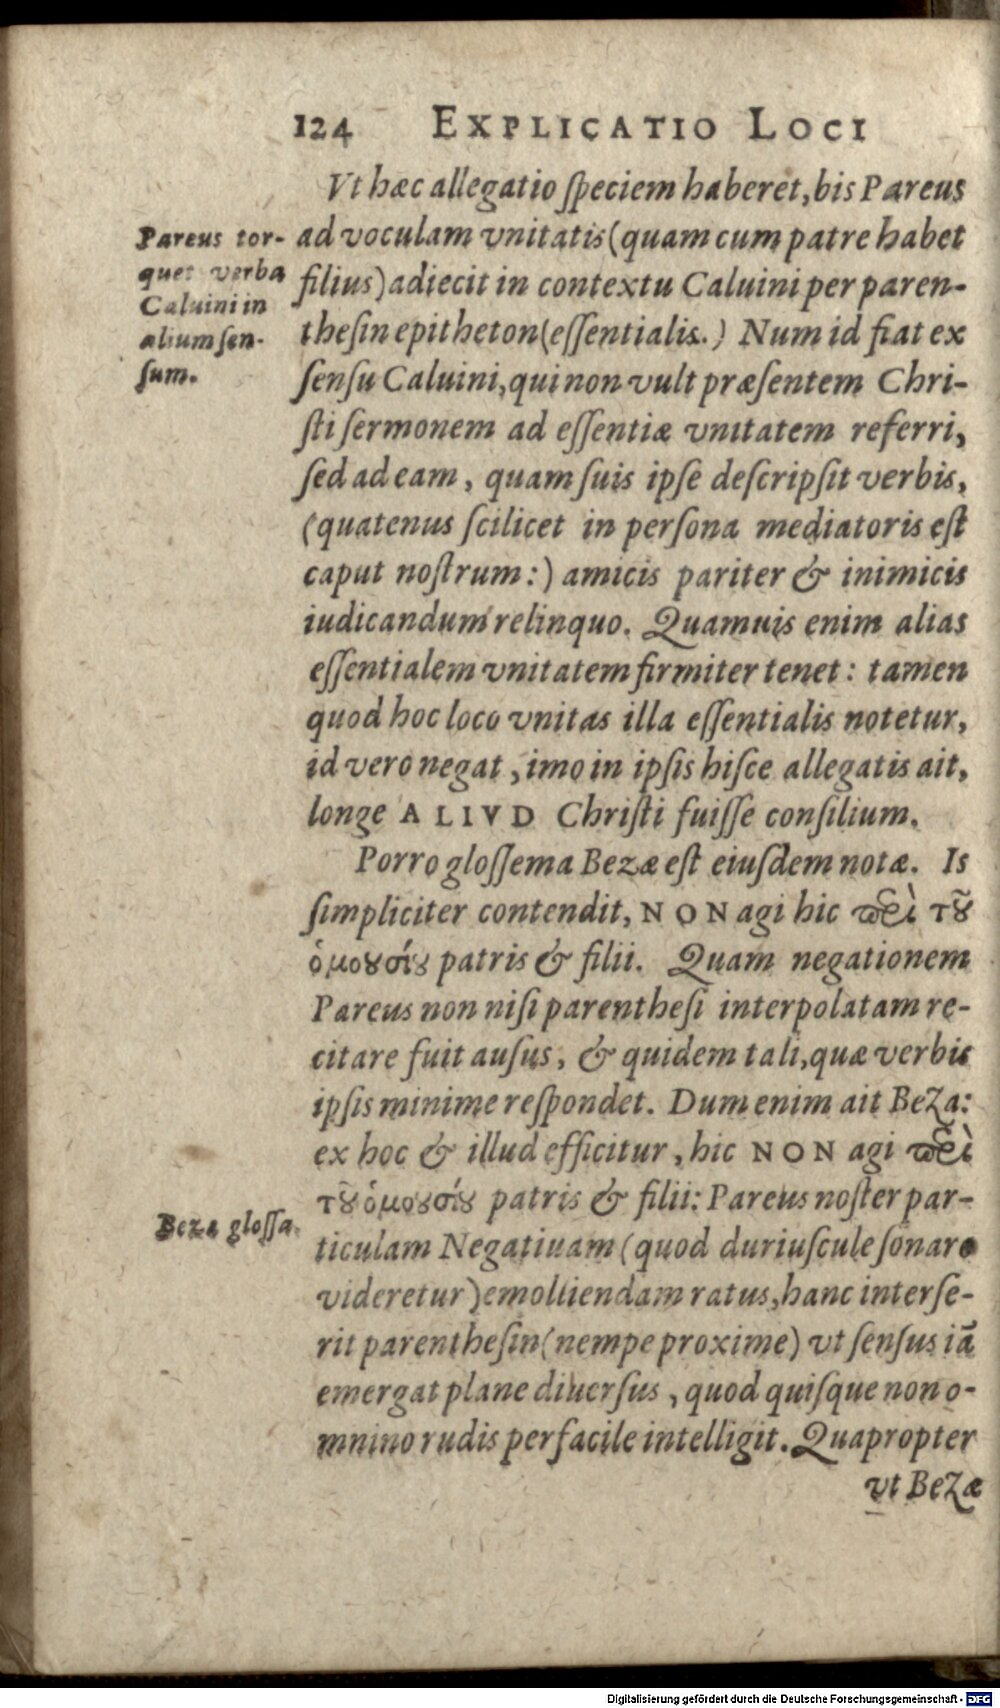 124 EXPLICATIO LOCI
Vt hæc allegatio ſpeciem haberet, bis Pareus
ad voculam vnitatis (quam cum patre habet
filius) adiecit in contextu Caluini per paren-
theſin epitheton (eſſentialis.) Num id fiat ex
ſenſu Caluini, qui non vult præſentem Chri-
ſti ſermonem ad eſſentiæ vnitatem referri,
ſed ad eam, quam ſuis ipſe deſcripſit verbis,
(quatenus ſcilicet in perſona mediatoris eſt
caput noſtrum:) amicis pariter & inimicis
iudicandum relinquo. Quamuis enim alias
eſſentialem vnitatem firmiter tenet: tamen
quod hoc loco vnitas illa eſſentialis notetur,
id vero negat, imo in ipſis hiſce allegatis ait,
longe ALIVD Chriſti fuiſſe conſilium.
Pareus tor-
quet verba
Caluini in
alium ſen-
ſum.
Porro gloſſema Bezæ eſt eiuſdem notæ. Is
ſimpliciter contendit, NON agi hic περὶ τȣ͂
ὁμοȣσίȣ patris & filii. Quam negationem
Pareus non niſi parentheſi interpolatam re-
citare fuit auſus, & quidem tali, quæ verbis
ipſis minime reſpondet. Dum enim ait Beza:
ex hoc & illud efficitur, hic NON agi περὶ
τȣ͂ ὁμοȣσίȣ patris & filii: Pareus noſter par-
ticulam Negatiuam (quod duriuſcule ſonare
videretur) emolliendam ratus, hanc interſe-
rit parentheſin (nempe proxime) vt ſenſus iā
emergat plane diuerſus, quod quiſque non o-
mnino rudis perfacile intelligit. Quapropter
Bezæ gloſſa.
vt Bezæ
Digitalisierung gefördert durch die Deutsche Forschungsgemeinschaft - DFG